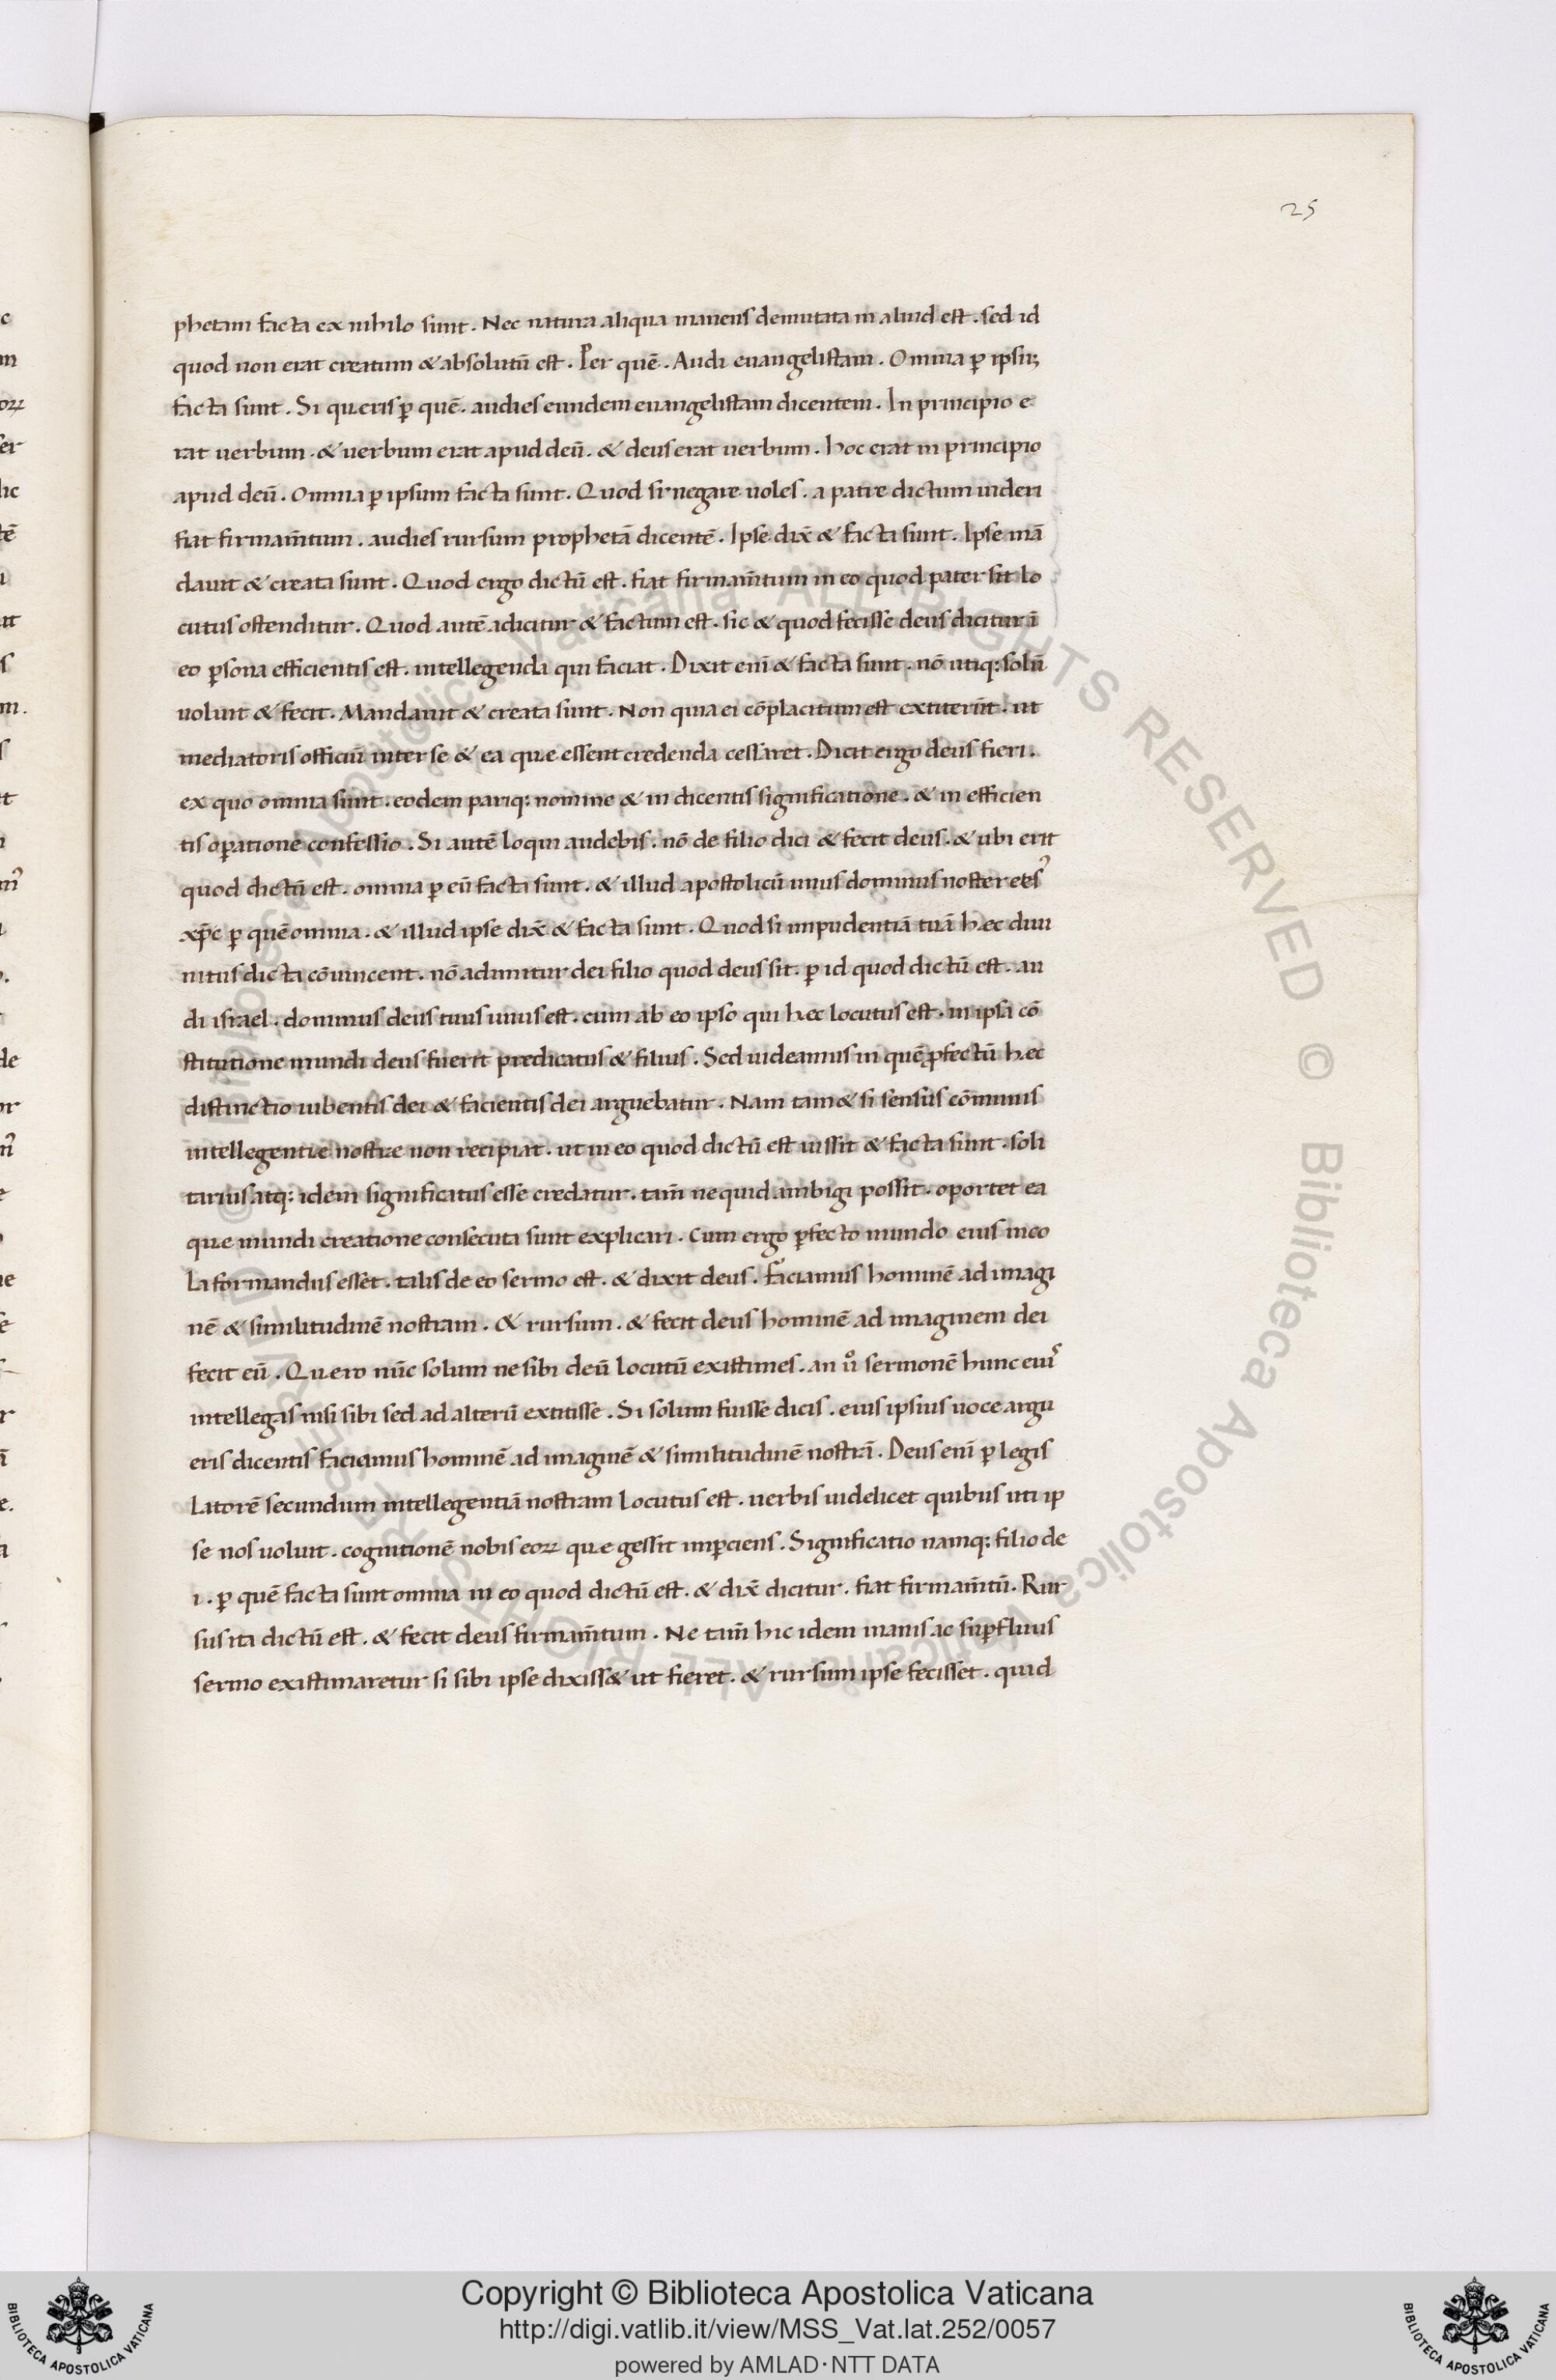 25
phetam facta ex nihilo sunt. Nec natura aliqua manens demutata in aliud est. sed id
quod non erat creatum & absolutū est. Per quē. Audi euangelistam. Omnia ꝑ ipsuꝫ
facta sunt. Si queris ꝑ quē. audies eundem euangelistam dicentem. In principio e
rat uerbum. & uerbum erat apud deū. & deus erat uerbum. hoc erat in principio
apud deū. Omnia ꝑ ipsum facta sunt. Quod si negare uoles. a patre dictum uideri
fiat firmam̄tum. audies rursum prophetā dicentē. Ipse dix̄ & facta sunt. Ipse mā
dauit & creata sunt. Quod ergo dictū est. fiat firmam̄tum in eo quod pater sit lo
cutus ostenditur. Quod autē adicitur & factum est. sic & quod fecisse deus dicitur ī
eo ꝑsona efficientis est. intellegenda qui faciat. Dixit enī & facta sunt. nō utiq: solū
uoluit & fecit. Mandauit & creata sunt. Non quia ei cōplacitum est extiterūt. ut
mediatoris officiū inter se & ea que essent credenda cessaret. Dicit ergo deus fieri.
ex quo omnia sunt. eodem pariq: nomine & in dicentis significatione. & in efficien
tis oꝑatione confessio. Si autē loqui audebis. nō de filio dici & fecit deus. & ubi erit
quod dictū est. omnia ꝑ eū facta sunt. & illud apostolicū unus dominus noster
xp̄c ꝑ quē omnia. & illud ipse dix̄ & facta sunt. Quod si impudentiā tuā hec diui
nitus dicta cōuincent. nō adimitur dei filio quod deus sit. ꝑ id quod dictū est. au
di israel. dominus deus tuus unus est. cum ab eo ipso qui hec locutus est. in ipsa cō
stitutione mundi deus fuerit predicatus & filius. Sed uideamus in quē ꝓfectū hec
distinctio iubentis dei & facientis dei arguebatur. Nam tam& si sensus cōmunis
intellegentie nostrae non recipiat. ut in eo quod dictū est iussit & facta sunt. soli
tarius atq: idem significatus esse credatur. tam̄ ne quid ambigi possit. oportet ea
que mundi creatione consecuta sunt explicari. Cum ergo ꝑfecto mundo eius inco
la formandus esset. talis de eo sermo est. & dixit deus. faciamus hominē ad imagi
nē & similitudinē nostram. & rursum. & fecit deus hominē ad imaginem dei
fecit eū. Quero nūc solum ne sibi deū locutū existimes. an uͦ sermonē hunc eius
intellegas nisi sibi sed ad alterū extitisse. Si solum fuisse dicis. eius ipsius uoce argu
eris dicentis faciamus hominē ad imaginē & similitudinē nostrā. Deus enī ꝑ legis
latorē secundum intellegentiā nostram locutus est. uerbis uidelicet quibus uti ip
se nos uoluit. cognitionē nobis eoꝝ que gessit imꝑciens. Significatio namq: filio de
i. ꝑ quē facta sunt omnia in eo quod dictū est. & dix̄ dicitur. fiat firmam̄tū. Rur
sus ita dictū est. & fecit deus firmam̄tum. Ne tam̄ hic idem inanis ac suꝑfluus
sermo existimaretur si sibi ipse dixiss& ut fieret. & rursum ipse fecisset. quid
Copyright © Biblioteca Apostolica Vaticana
http://digi.vatlib.it/view/MSS_Vat.lat.252/0057
powered by AMLAD·NTT DATA
BIBLIOTECA APOSTOLICA VATICANA
BIBLIOTECA APOSTOLICA VATICANA